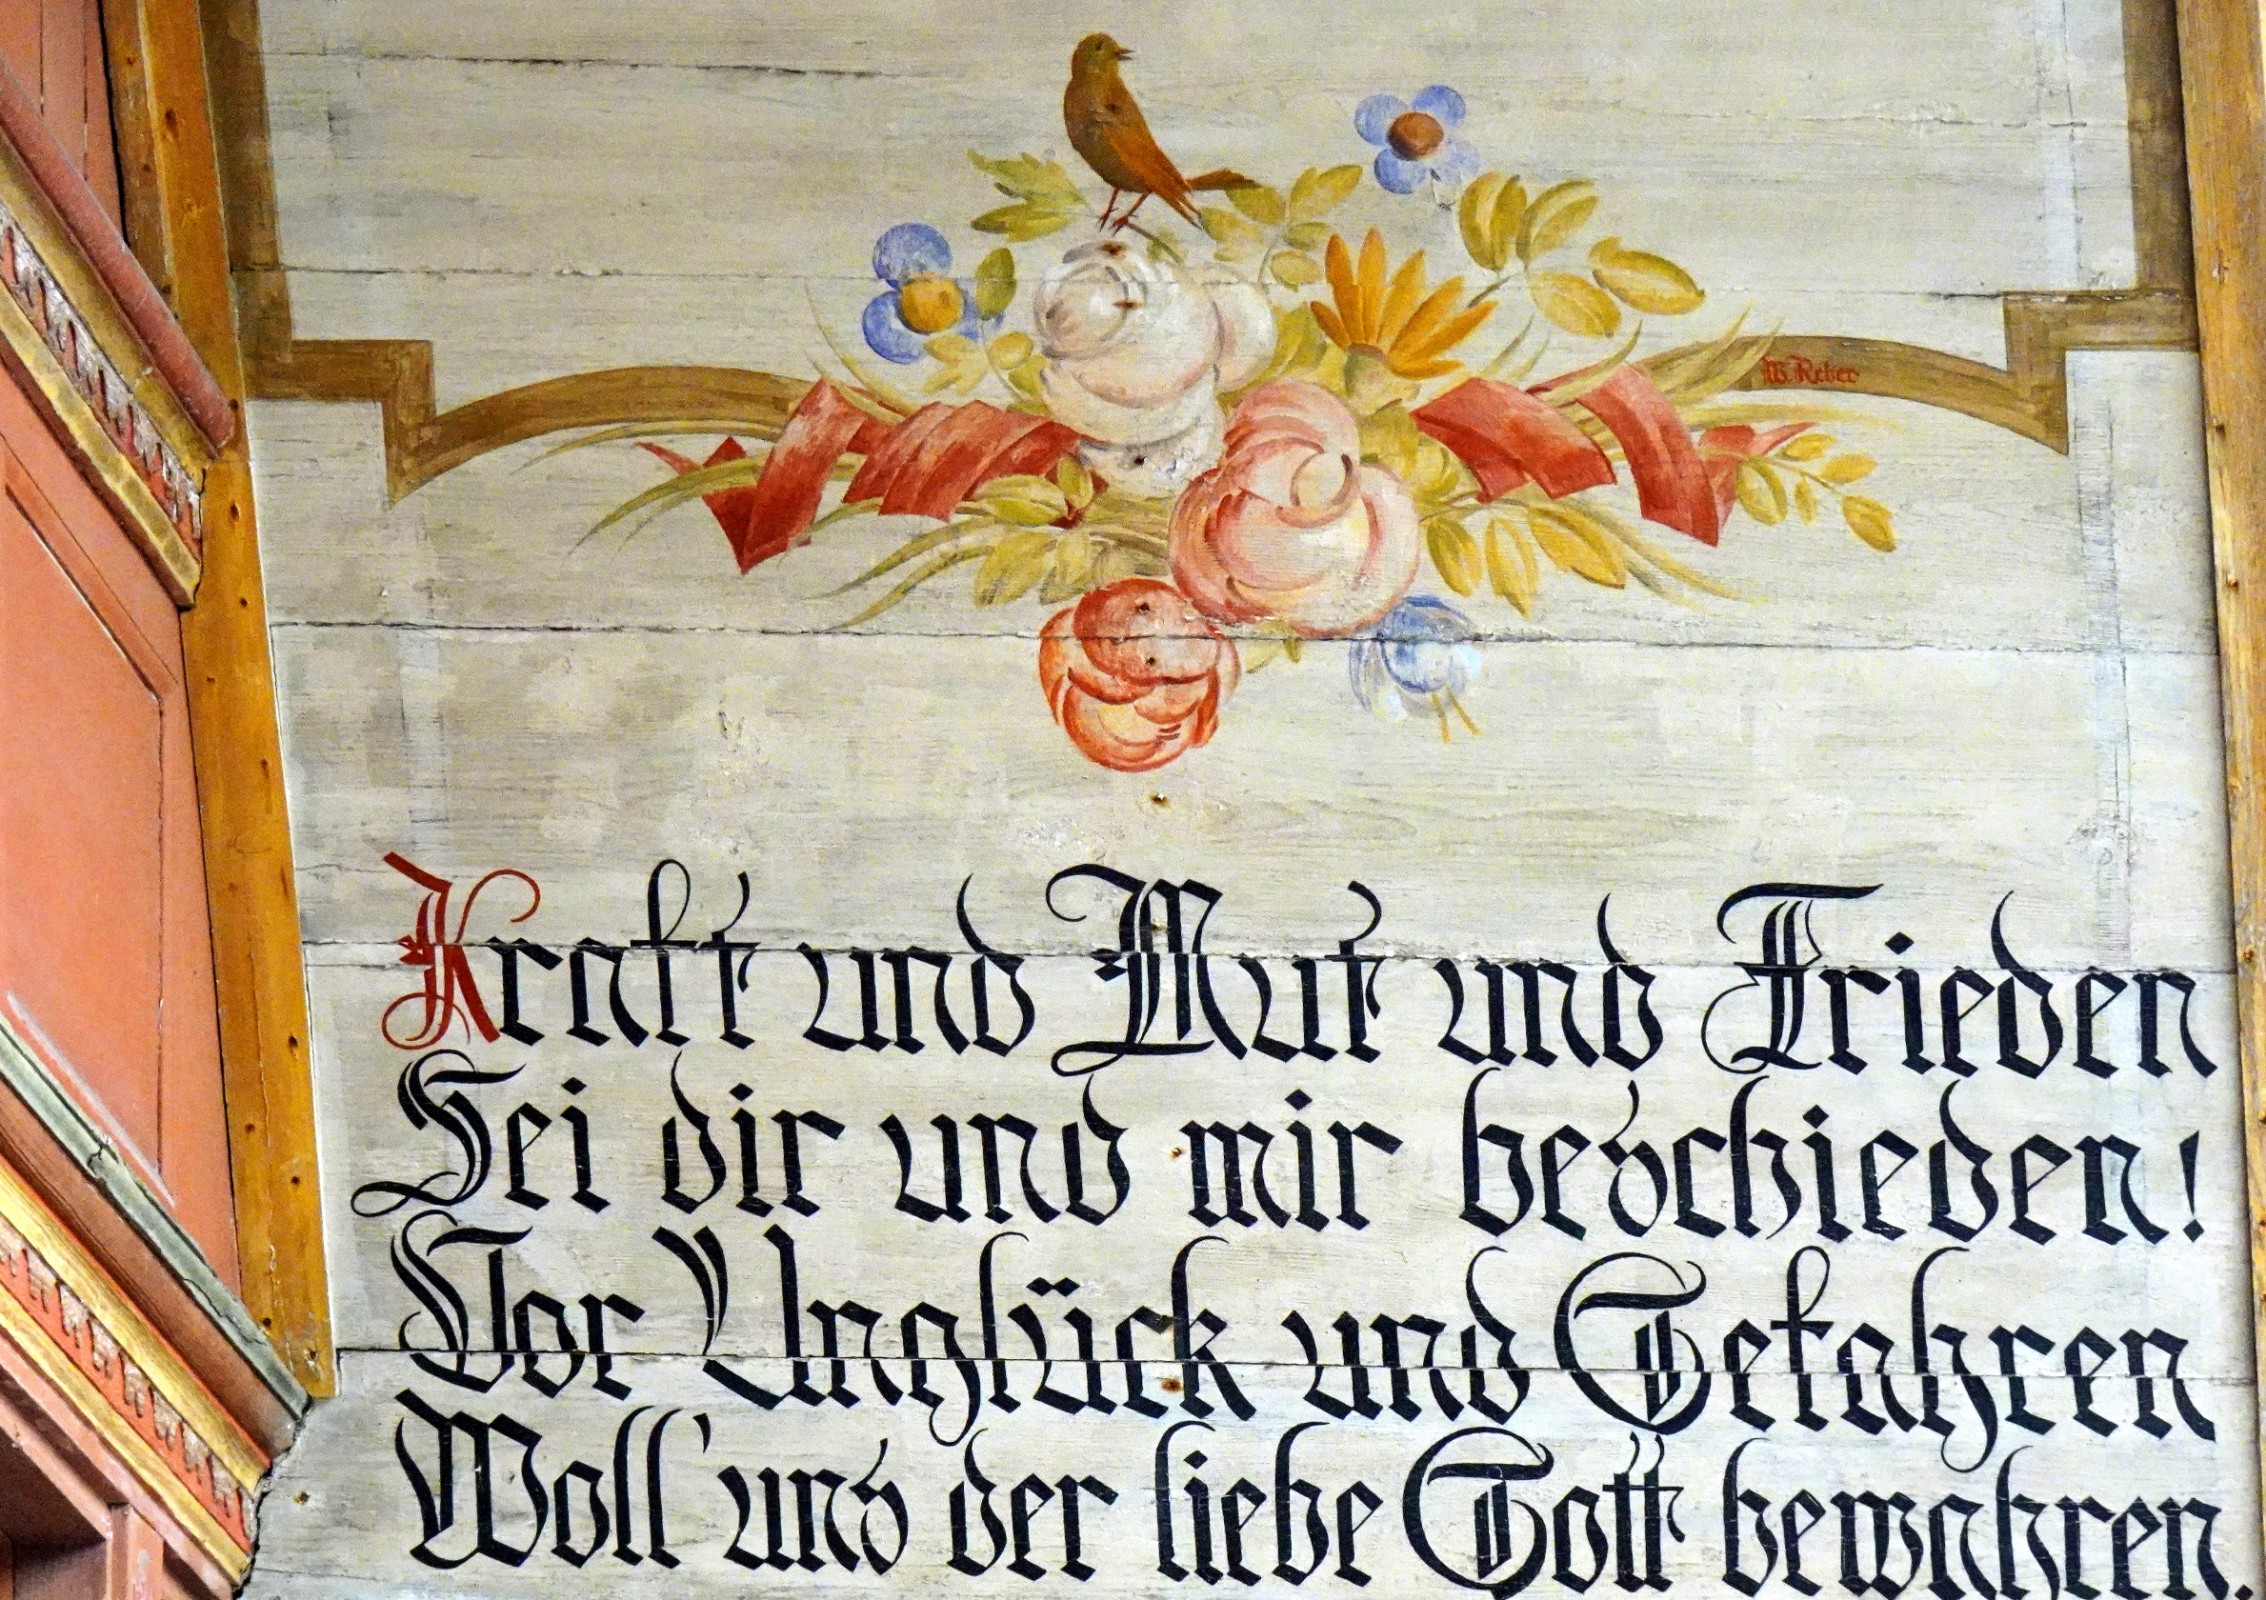 W. Reber
Kraft und Mut und Frieden
Sei dir und mir beschieden!
Vor Unglück und Gefahren
Woll' uns der liebe Gott bewahren.